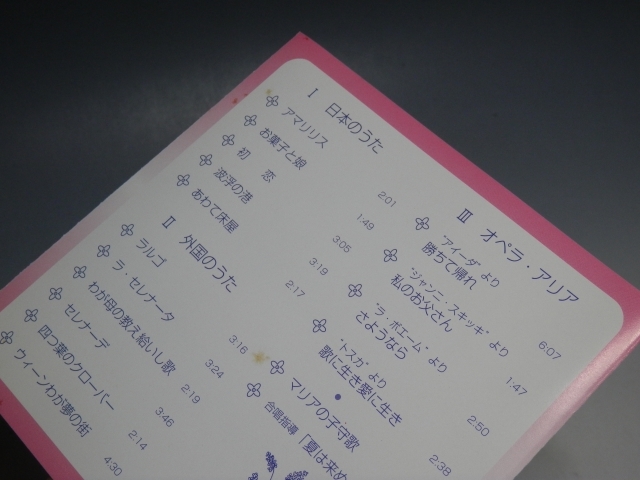 I 日本のうた
アマリリス 2:01
お菓子と娘 1:49
初恋 3:05
波浮の港 3:19
あわて床屋 2:17
II 外国のうた
ラルゴ 3:16
ラ・セレナータ 3:24
わが母の教え給いし歌 2:19
セレナーデ 3:46
四つ葉のクローバー 2:14
ウィーンわが夢の街 4:30
III オペラ・アリア
"アイーダ"より
勝ちて帰れ 6:07
"ジャンニ・スキッキ"より
私のお父さん 1:47
"ラ・ボエーム"より
さようなら 2:50
"トスカ"より
歌に生き愛に生き 2:38
マリアの子守歌
合唱指導「夏は来め